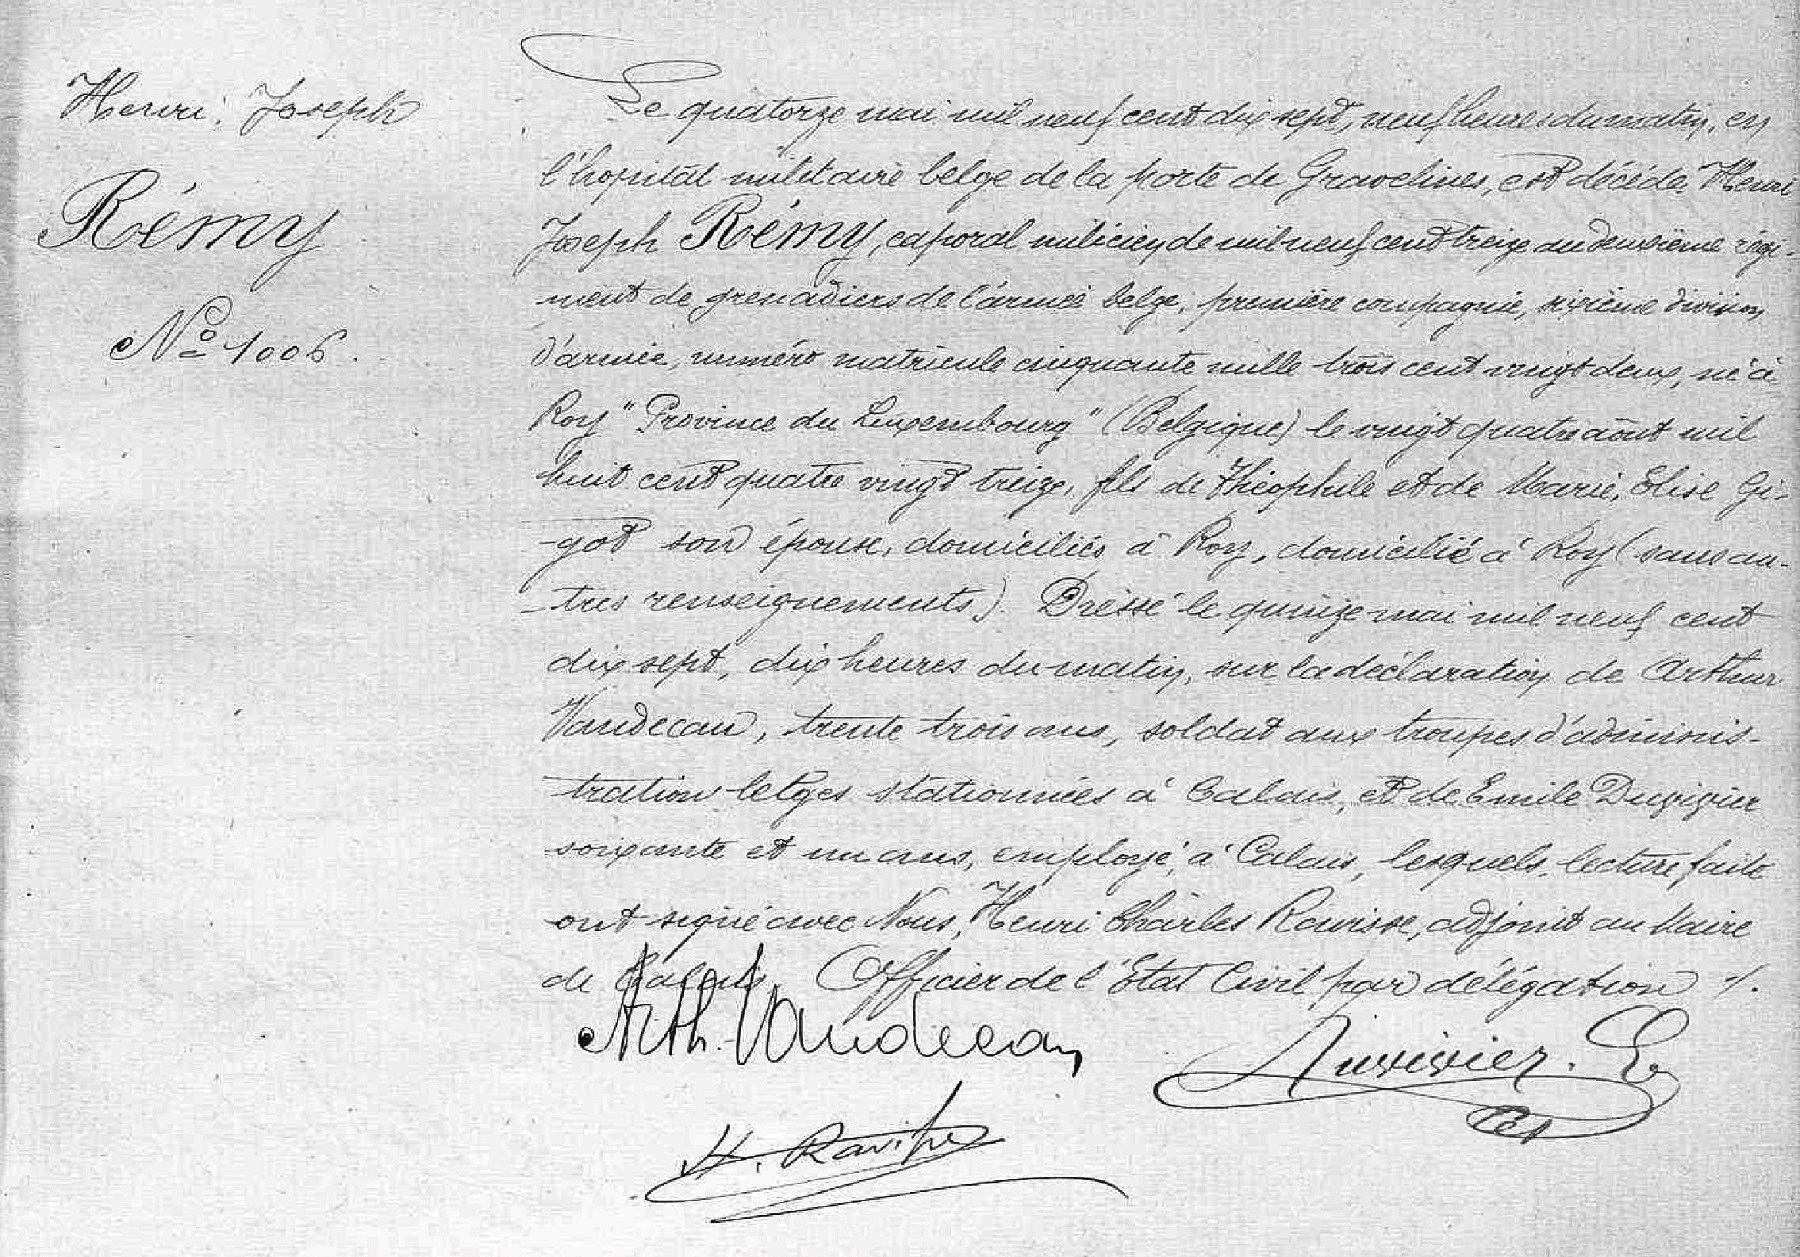 Henri, Joseph
Rémy
No 1006.
Le quatorze mai mil neuf cent dix sept, neuf heures du matin, en
l'hopital militaire belge de la porte de Gravelines, est décédé, Henri
Joseph Rémy, caporal milicien de mil neuf cent treize au deuxième régi-
ment de grenadiers de l'armée belge, première compagnie, sixième division
d'armée, numéro matricule cinquante mille trois cent vingt deux, né à
Roy "Province du Luxembourg" (Belgique) le vingt quatre août mil
huit cent quatre vingt treize, fils de Théophile et de Marie, Elise Gi-
-got son épouse, domiciliés à Roy, domicilié à Roy (sans au-
-tres renseignements). Dressé le quinze mai mil neuf cent
dix sept, dix heures du matin, sur la déclaration de Arthur
Vandecan, trente trois ans, soldat aux troupes d'adminis-
-tration belges stationnées à Calais, et de Emile Duvivier
soixante et un ans, employé, à Calais, lesquels, lecture faite
ont signé avec Nous, Henri Charles Ravisse, adjoint au Maire
de Calais, Officier de l'Etat Civil par délégation ./.
Arth. Vandecan
Duvivier. E
H. Ravisse